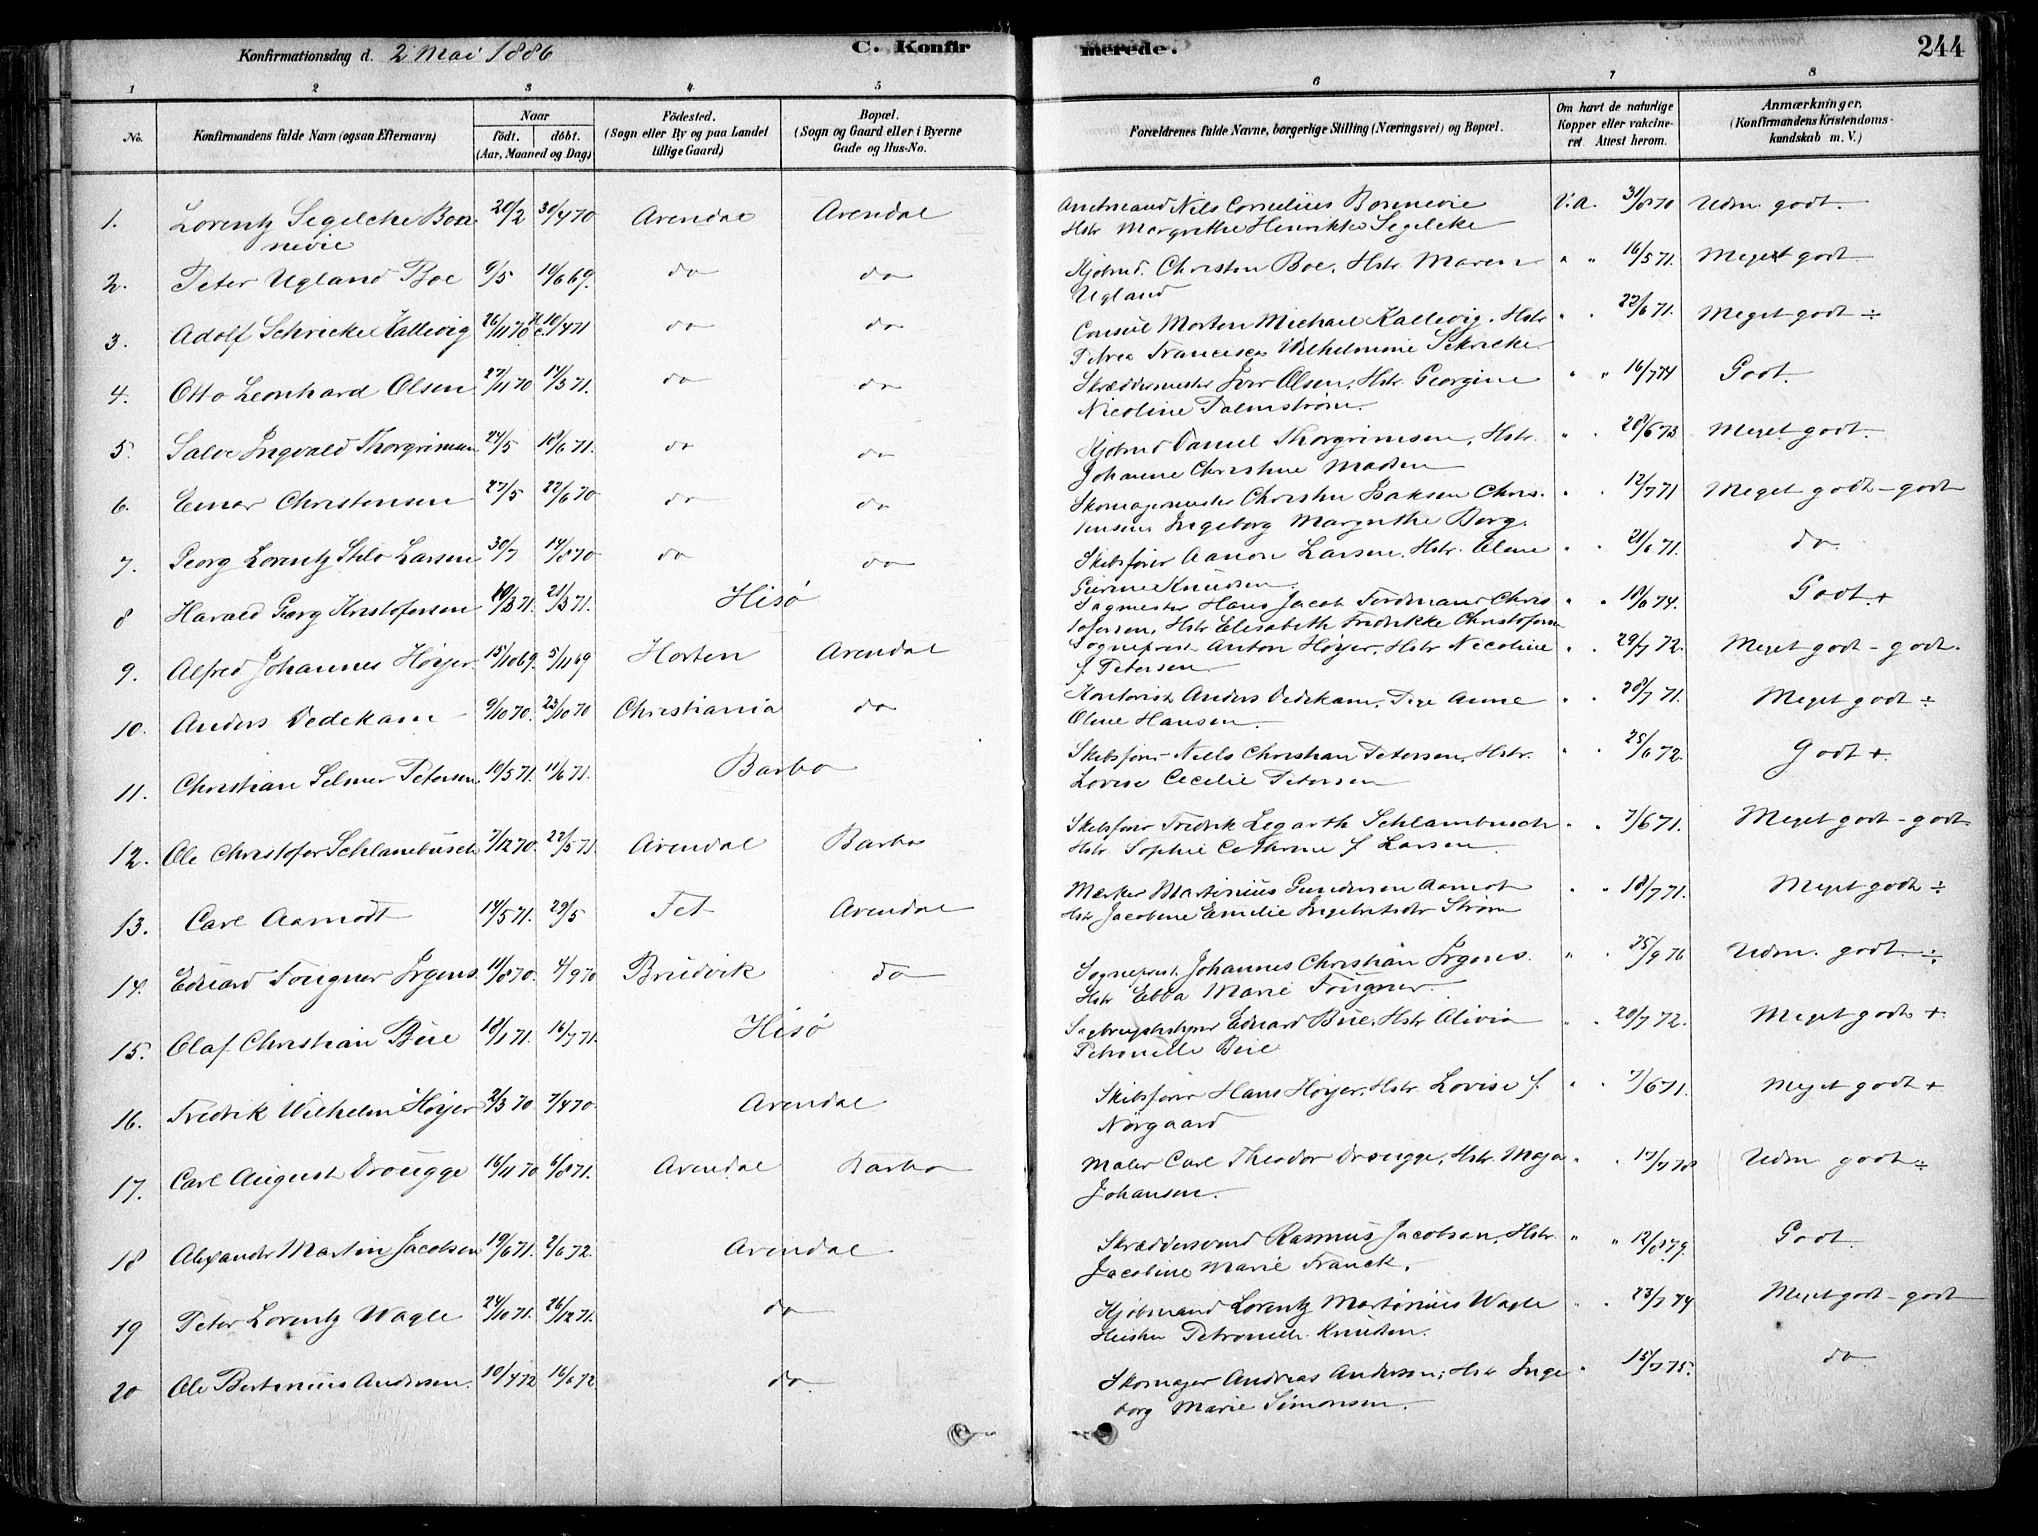 Konfirmationsdag d. 2 Mai 1886
C. Konfirmerede.
244
1 2 3 4 5 6 7 8
No.
Konfirmandens fulde Navn (ogsaa Efternavn)
Naar
födt. döbt.
(Aar, Maaned og Dag)
Födested.
(Sogn eller By og paa Landet tillige Gaard)
Bopæl.
(Sogn og Gaard eller i Byerne Gade og Hus-No.
Forældrenes fulde Navne, borgerlige Stilling (Næringsvei) og Bopæl.
Om havt de naturlige Kopper eller vakcineret Attest herom.
Anmærkninger.
(Konfirmandens Kristendomskundskab m. V.)
1. Lorentz Segelcke Bonnevie 20/2 30/4 70 Arendal Arendal Amtmand Nils Cornelius Bonnevie V.a. 31/8 70 Udm. godt.
Hstr Margrethe Henrikke Segelcke
2. Peter Ugland Boe 9/5 10/6 69. do do Kjøbmd. Christen Boe, Hstr Maren " " 16/5 71. Meget godt.
Ugland
3. Adolf Schricke Kallevig 26/11 70 10/4 71 do do Consul Morten Michael Kallevig, Hstr " " 22/6 71. Meget godt ÷
Petrea Francisca Wilhelmine Schricke
4. Otto Leonhard Olsen 27/11 70 14/3 71. do do Skræddermester Iver Olsen, Hstr. Georgine " " 16/7 74 Godt.
Nicoline Palmstrøm.
5. Salve Ingvald Thorgrimsen 24/5 18/6 71. do do Kjøbmd Daniel Thorgrimsen, Hstr. " " 28/6 73 Meget godt.
Johanne Christine Madsen
6. Einar Christensen 27/5 22/6 70 do do Skomagermester Christen Isaksen Chris- " " 12/7 71 Meget godt - godt
tensen Ingeborg Margrethe Borg.
7. Georg Lorentz Stilo Larsen 30/7 14/8 70 do do Skibsfører Aanon Larsen, Hstr. Elene " " 21/6 71. do
Gurine Knudsen.
8 Harald Georg Kristofersen 19/3 71. 21/3 71. Hisø Sagmester Hans Jacob Ferdinand Chris " " 10/6 74. Godt +
tofersen, Hstr Elisabeth Fredrikke Christofersen
9. Alfred Johannes Høyer 15/10 69. 5/11 69 Horten Arendal Sogneprest Anton Høyer, Hstr Nicoline " " 29/7 72. Meget godt - godt.
f. Petersen
10. Anders Dedekam 9/10 70. 23/10 70 Christiania do Kontorist Anders Dedekam, Pige Anne " " 28/7 71. Meget godt ÷
Oline Hansen.
11. Christian Selmer Petersen 10/5 71. 11/6 71. Barbo Skibsfører Niels Christian Petersen, Hstr. " " 25/6 72. Godt +
Lovise Cecilie Petersen
12. Ole Christofer Schlanbusch 7/12 70. 22/5 71. Arendal Barbo Skibsfører Fredrik Legarth Schlambusch " " 7/6 71. Meget godt - godt
Hstr Sophie Cathrine f. Larsen
13. Carl Aamodt 14/5 71. 29/5 Fet Arendal Mærker Martinius Gundersen Aamot " " 18/7 71. Meget godt ÷
Hstr Jacobine Emilie Ingebretsdtr Strøm
14. Eduard Fougner Irgens 11/8 70. 4/9 70 Brudvik do Sogneprest Johannes Christian Irgens. " " 25/9 76 Udm. godt. ÷
Hstr Ebba Marie Fougner.
15. Olaf Christian Bue 18/1 71. 16/7 71. Hisø Sagbrugsbestyrer Eduard Bue, Hstr Olivia " " 20/7 72. Meget godt +
Petronelle Bue
16. Fredrik Wilhelm Høyer 2/3 70 7/4 70. Arendal Skibsfører Hans Høyer, Hstr. Lovise f. " " 7/6 71. Meget godt +
Nørgaard
17. Carl August Drougge 16/11 70 6/8 71. Arendal Barbo Maler Carl Theodor Drougge, Hstr. Maja " " 17/7 78 Udm. godt ÷
Johansen.
18 Alexander Martin Jacobsen 19/6 71. 2/6 72. Arendal Skræddersvend Rasmus Jacobsen, Hstr. " " 12/8 79. Godt.
Jacobine Marie Franck.
19 Peter Lorentz Wagle 24/10 71. 26/12 71. do Kjøbmand Lorentz Martinius Wagle " " 23/7 74 Meget godt - godt
Hustru Petronelle Knudsen.
20 Ole Bertinius Andersen. 10/4 72 16/6 72 do. Skomager Andreas Andersen, Hstr Inge " 15/7 75. do
borg Marie Simonsen.